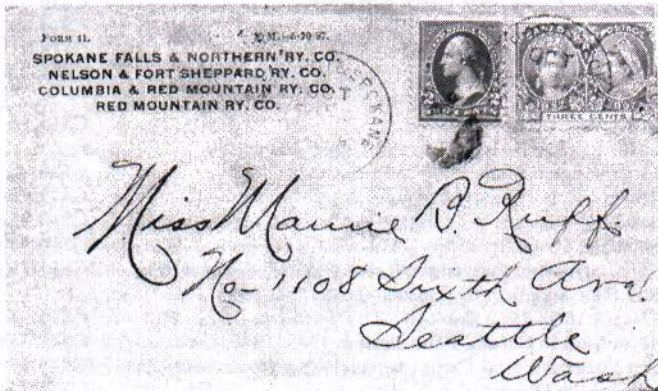 FORM 11.
SPOKANE FALLS & NORTHERN RY. CO.
NELSON & FORT SHEPPARD RY. CO.
COLUMBIA & RED MOUNTAIN RY. CO.
RED MOUNTAIN RY. CO.
SPOKANE
OCT
THREE CENTS
Miss Mamie B. Ruff.
No- 1108 Sixth Ava.
Seattle
Wash